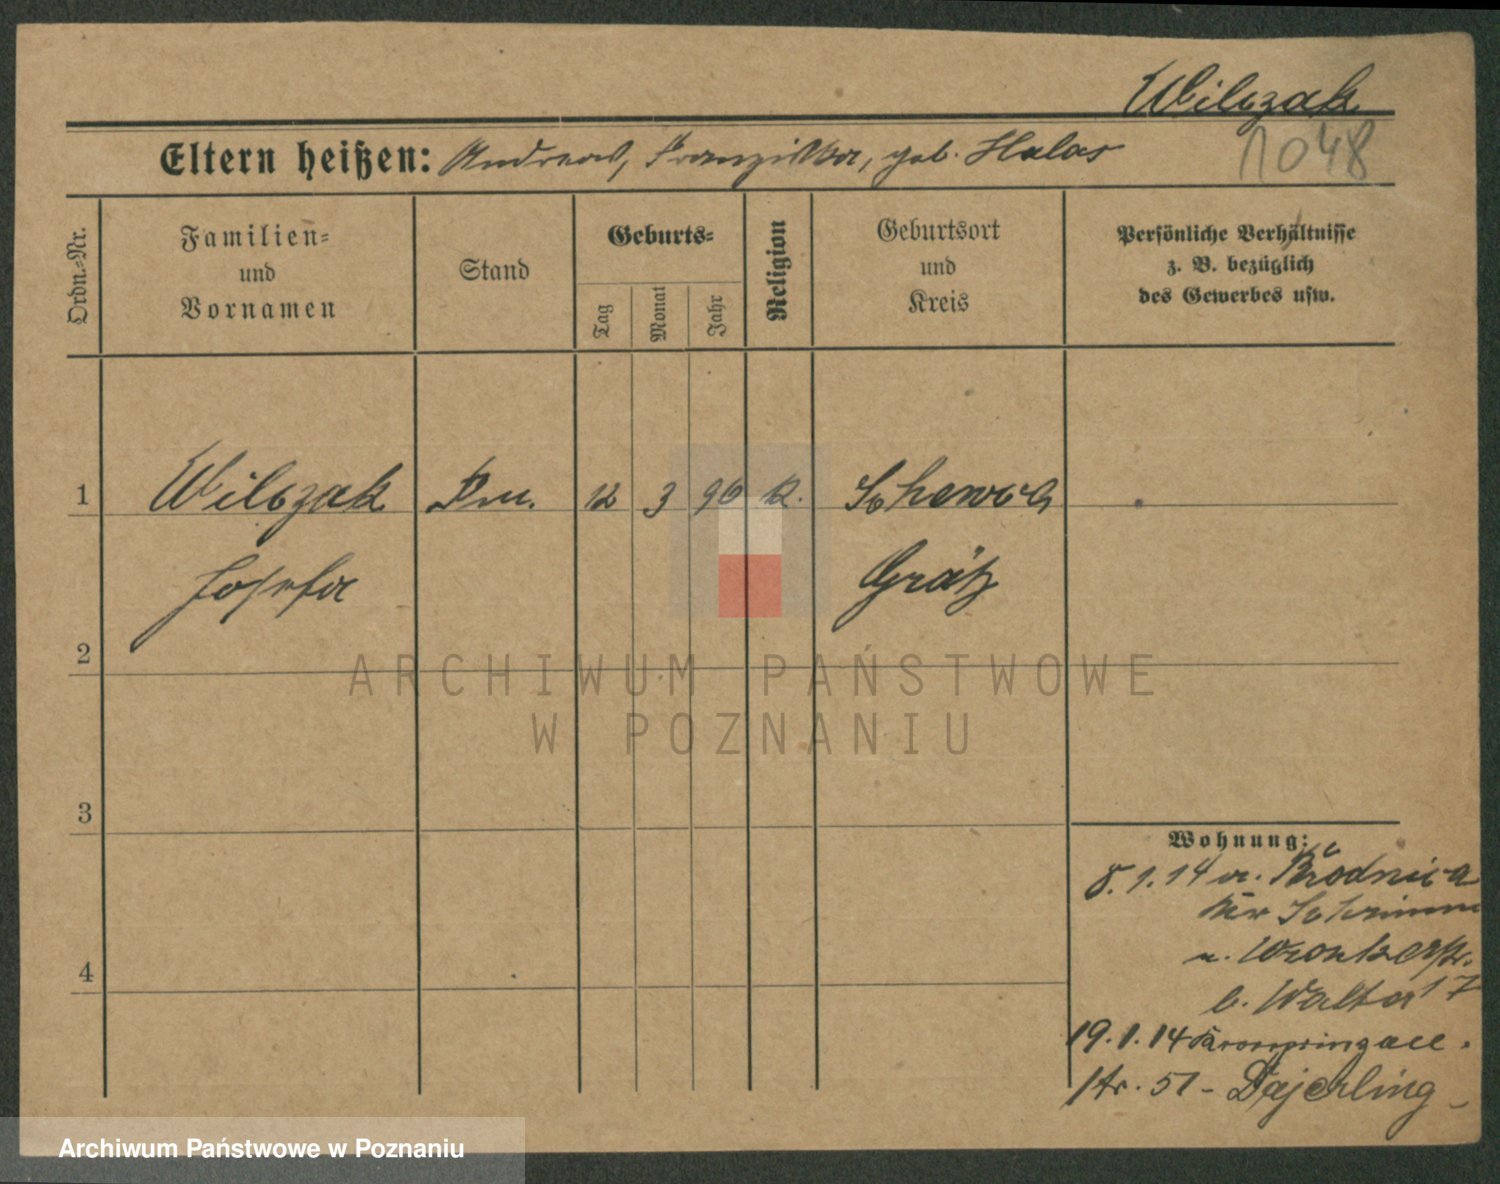 Wilczak
1048
Eltern heißen: Andreas, Franziska, geb. Halas
Ordn.-Nr.
Familien-
und
Vornamen
Stand
Geburts-
Tag
Monat
Jahr
Religion
Geburtsort
und
Kreis
Persönliche Verhältnisse
z. B. bezüglich
des Gewerbes usw.
1 Wilczak 12 3 90 k.
Josefa Grätz
2
3
4
Wohnung:
8.1.14 v. Brodnica
Schrimm
n. Wronkerstr.
b. Walter 17
19.1.14 Kronprinzall.
str. 51 -
ARCHIWUM PAŃSTWOWE
W POZNANIU
Archiwum Państwowe w Poznaniu